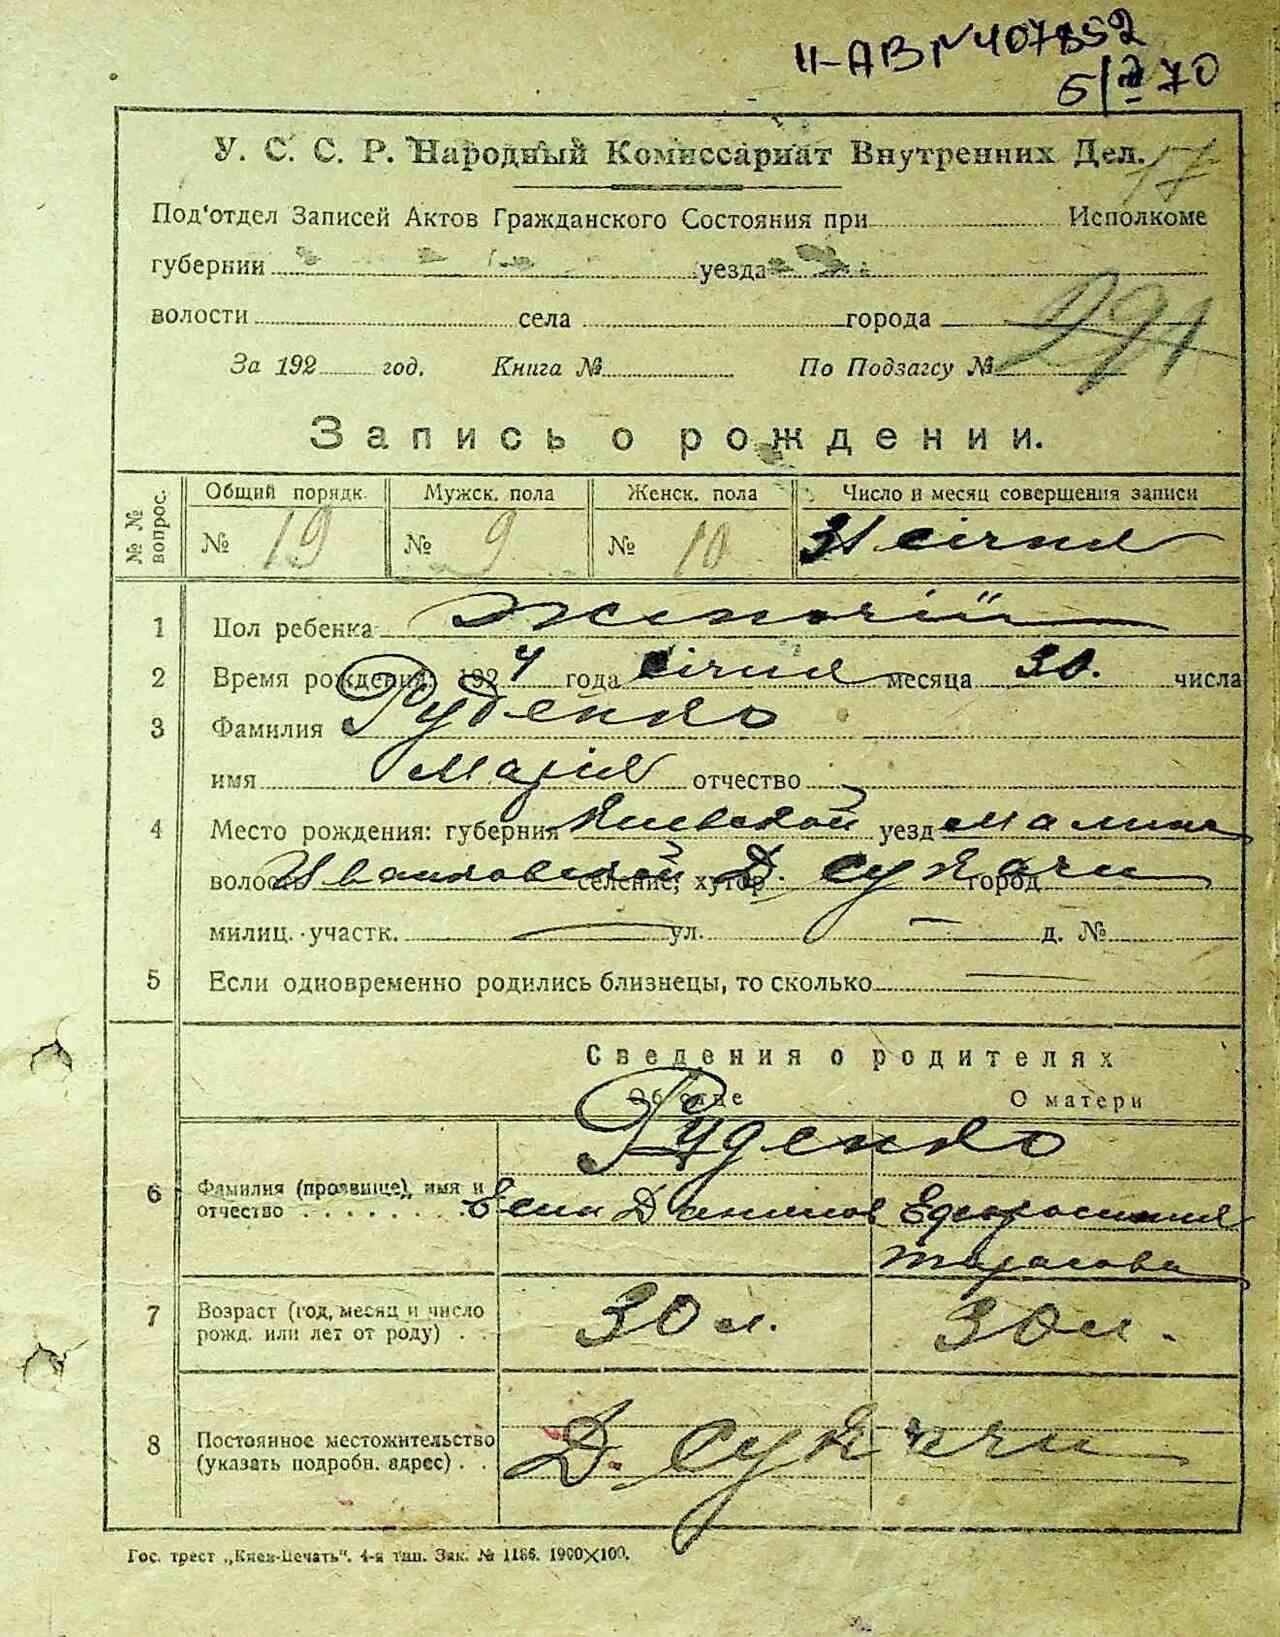 II-АВ № 407852
5/II 70
У. С. С. Р. Народный Комиссариат Внутренних Дел.
17
Под'отдел Записей Актов Гражданского Состояния при Исполкоме
губернии уезда
волости села города
291
За 192 год. Книга № По Подзагсу №
Запись о рождении.
№ № вопрос. Общий порядк. Мужск. пола Женск. пола Число и месяц совершения записи
№ 19 № 9 № 10 31 січня
1 Пол ребенка жіночий
2 Время рождения: 1924 года січня месяца 30. числа
3 Фамилия Руденко
имя Марія отчество
4 Место рождения: губерния Киевской уезд Малин
волость Иванковской селение, хутор Д. Сукачи город
милиц. участк. — ул. — д. №
5 Если одновременно родились близнецы, то сколько —
Сведения о родителях
Об отце О матери
Руденко
6 Фамилия (прозвище), имя и
отчество Есип Данилов Ефросиния
Тарасова
7 Возраст (год, месяц и число
рожд. или лет от роду) 30 л. 30 л.
8 Постоянное местожительство
(указать подробн. адрес) Д. Сукачи
Гос. трест „Киев-Печать". 4-я тип. Зак. № 1186. 1900×100.